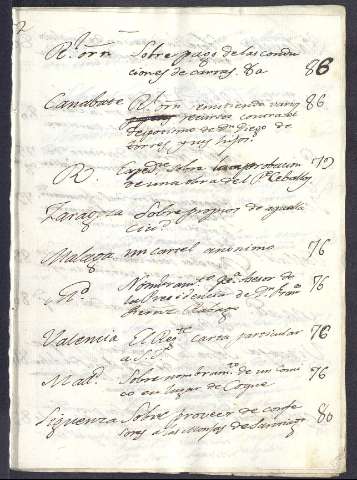 2
Rl orn Sobre pago de las condu
ciones de carros. &a 86
Canabate Rl orn remitiendo varios 86
recursos contra el
de Dn Diego de
torres y sus hijos.
R. Expedte sobre la aprobacion 79
de una obra del Pe Ceballos
Zaragoza Sobre propios de aquella
Ciud
Malaga un cartel anonimo 76
Md Nombramte por Asesor de 76
la Presidencia de Dn Franco
Valencia El Rexte carta particular 76
a S. Ea
Mad. Sobre nombramto de un comi 76
co en lugar de Coque
Siguenza Sobre proveer de confe 80
sores a las Monjas de Santiago